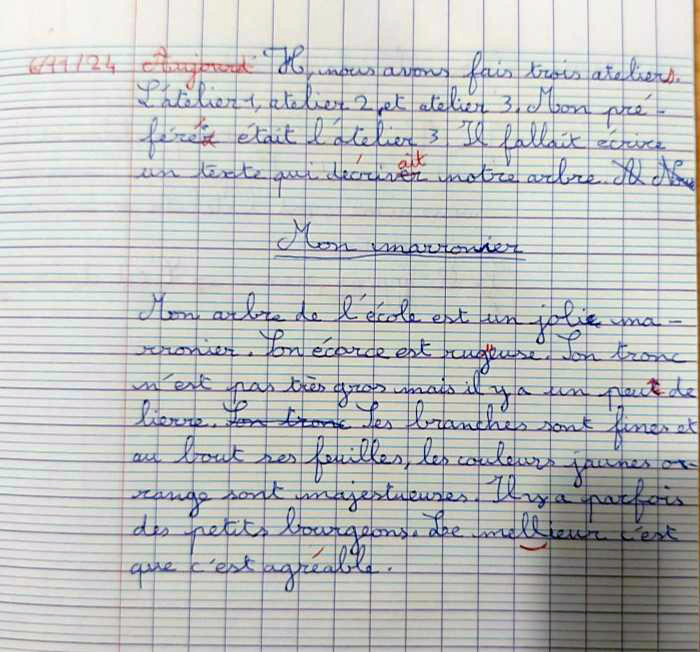 6/11/24 Aujourd'H, nous avons fais trois ateliers.
L'atelier 1, atelier 2, et atelier 3. Mon pré-
féré était l'atelier 3. Il fallait écrire
un texte qui décrivait notre arbre.
Mon marronier
Mon arbre de l'école est un jolie ma-
rronier. Son écorce est rugeuse. Son tronc
n'est pas très gros mais il y a un peut de
lierre. Son tronc Ses branches sont fines et
au bout ses feuilles, les couleurs jaunes o-
range sont majestueuses. Il y a parfois
des petits bourgeons. Le mellieur c'est
que c'est agréable.